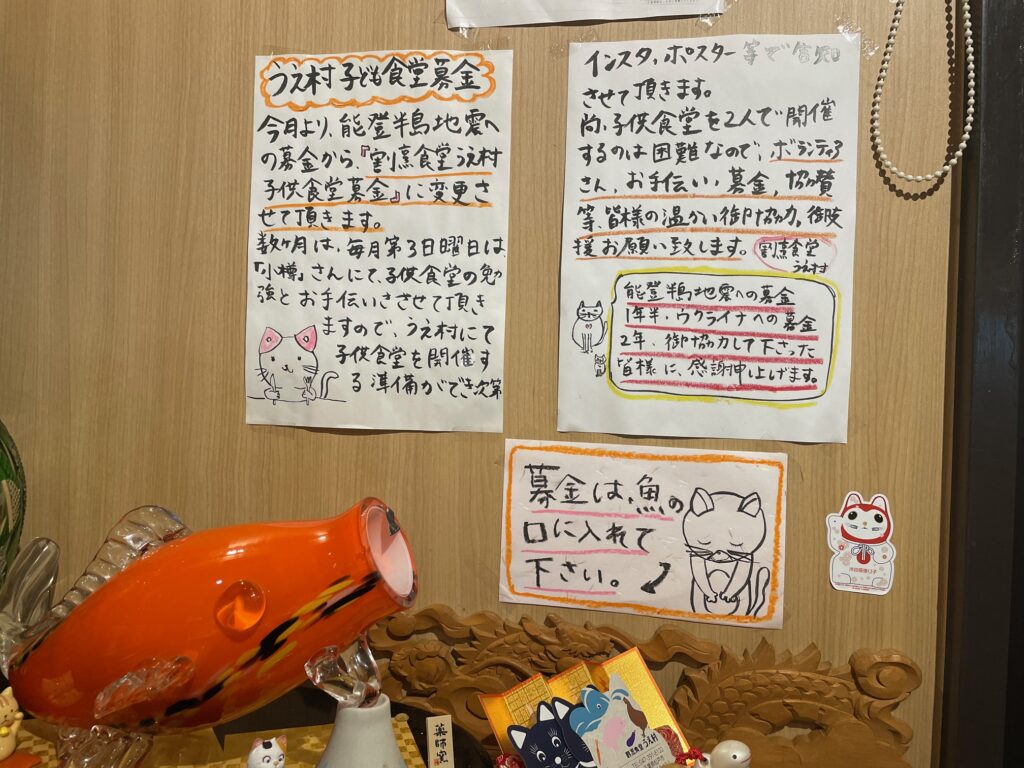 うえ村子ども食堂募金
今月より、能登半島地震へ
の募金から、『割烹食堂うえ村
子供食堂募金』に変更さ
せて頂きます。
数ヶ月は、毎月第3日曜日は、
「小樽」さんにて、子供食堂の勉
強とお手伝いさせて頂き
ますので、うえ村にて
子供食堂を開催す
る準備ができ次第
インスタ、ポスター等で告知
させて頂きます。
尚、子供食堂を2人で開催
するのは困難なので、ボランティア
さん、お手伝い、募金、協賛
等、皆様の温かい御協力、御支
援お願い致します。
割烹食堂
うえ村
能登半島地震への募金
1年半、ウクライナへの募金
2年、御協力して下さった
皆様に、感謝申し上げます。
募金は、魚の
口に入れて
下さい。
薬師窯